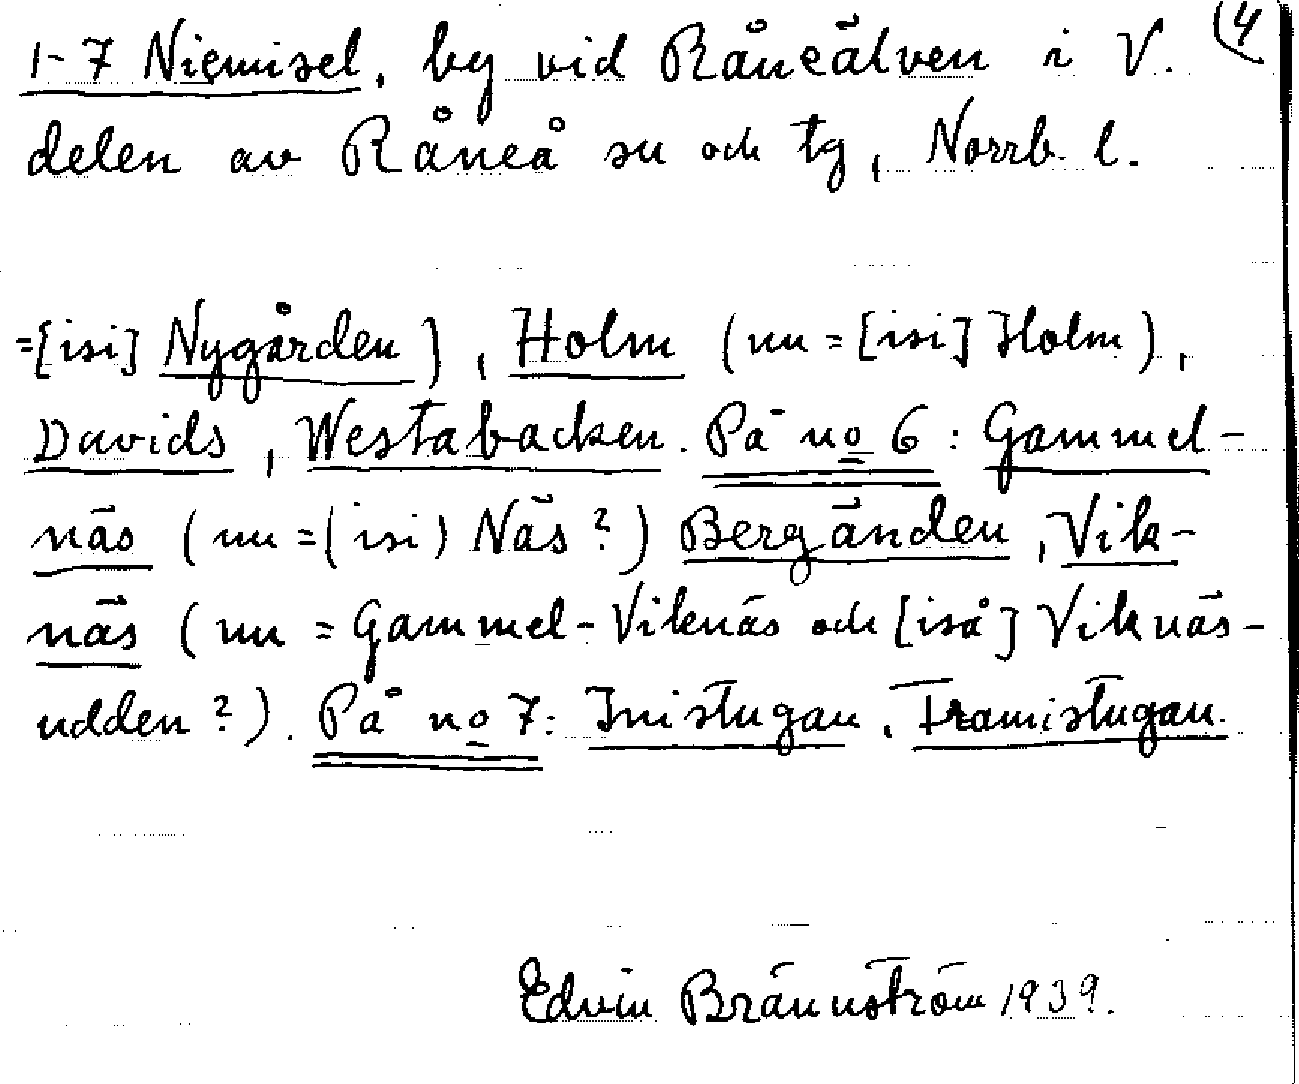 (4
1-7 Niemisel, by vid Råneälven i V.
delen av Råneå sn och tg, Norrb. l.
=[isi] Nygården), Holm (nu = [isi] Holm),
Davids, Westabacken. På no 6: Gammel-
näs (nu = (isi) Näs?) Bergänden, Vik-
näs (nu = Gammel-Viknäs och [iså] Viknäs-
udden?). På no 7: Inistugan, Framistugan.
Edvin Brännström 1939.